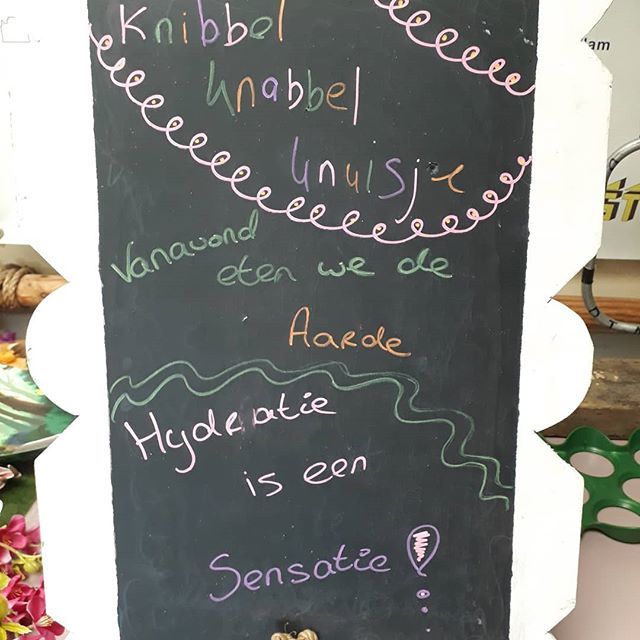 Knibbel
Knabbel
Knuisje
Vanavond
eten we de
Aarde
Hydratie
is een
Sensatie!